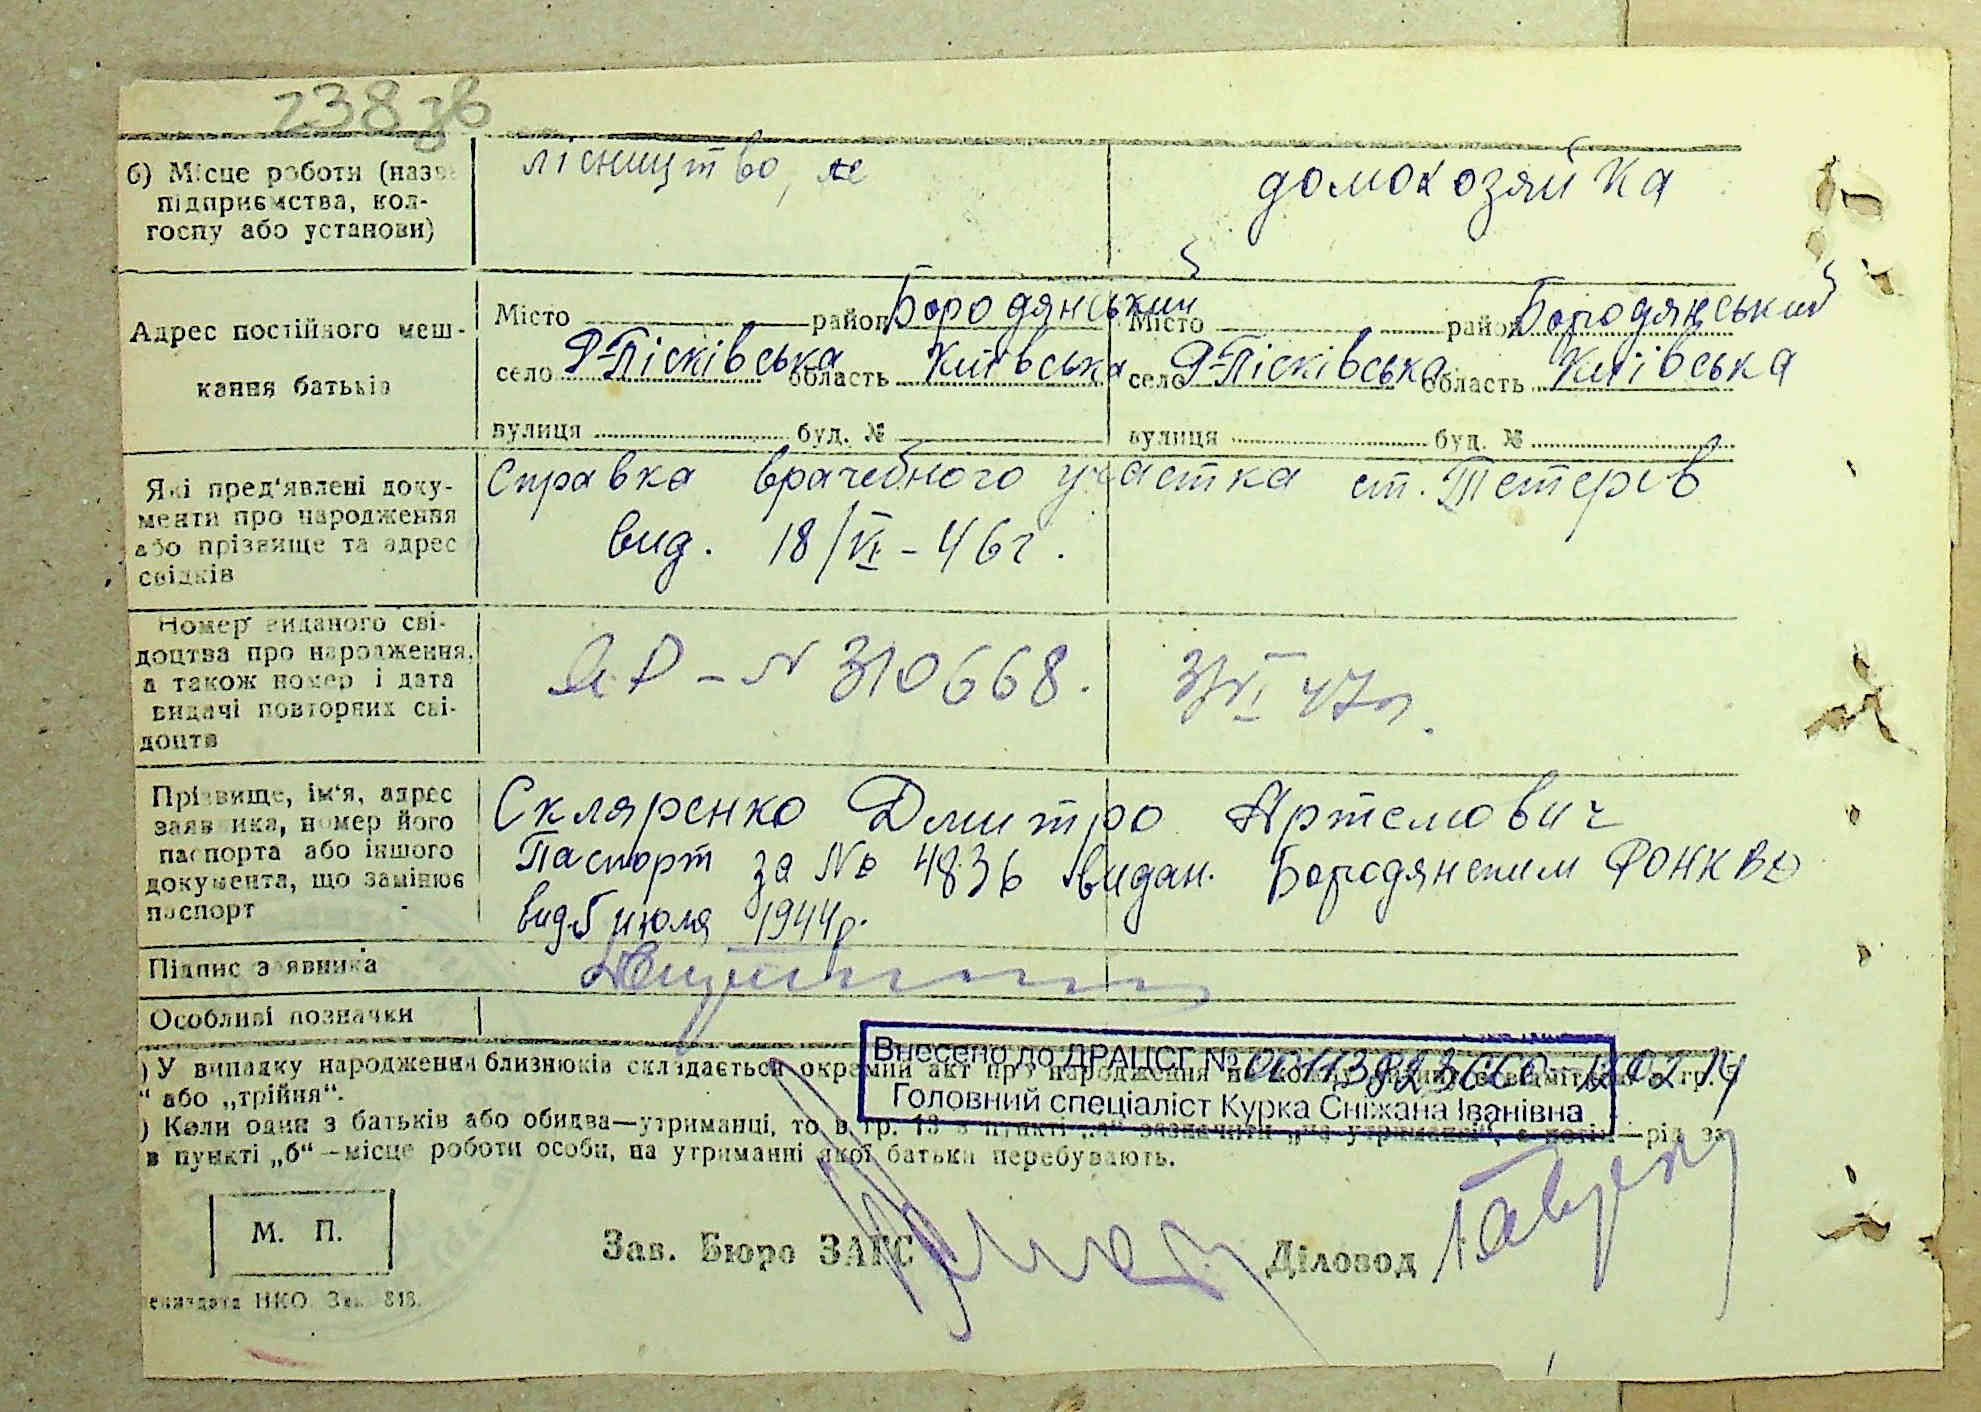 238зв
б) Місце роботи (назва підприємства, колгоспу або установи)
лісництво,
домохозяйка
Адрес постійного мешкання батьків
Місто район Бородянський
село Р-Пісківська область Київська
вулиця буд. №
Місто район Бородянський
село Р-Пісківська область Київська
вулиця буд. №
Які пред'явлені документи про народження або прізвище та адрес свідків
Справка врачебного участка ст. Тетерів
вид. 18/VI - 46 г.
Номер виданого свідоцтва про народження, а також номер і дата видачі повторних свідоцтв
- N 310668. 3/VI 47р.
Прізвище, ім'я, адрес заявника, номер його паспорта або іншого документа, що замінює паспорт
Скляренко Дмитро Артемович
Паспорт за № 4836 видан. Бородянским РОНКВД
вид. 5 июля 1944р.
Підпис заявника
Особливі позначки
Внесено до ДРАЦСГ №
Головний спеціаліст Курка Сніжана Іванівна
) У випадку народження близнюків складається окремий акт про народження
" або „трійня".
) Коли один з батьків або обидва—утриманці, то в гр. 13 в пункті „а" зазначити „на утриманні", а потім—рід за
в пункті „б"—місце роботи особи, на утриманні якої батьки перебувають.
М. П.
Зав. Бюро ЗАГС
Діловод
НКО. Зак. 818.